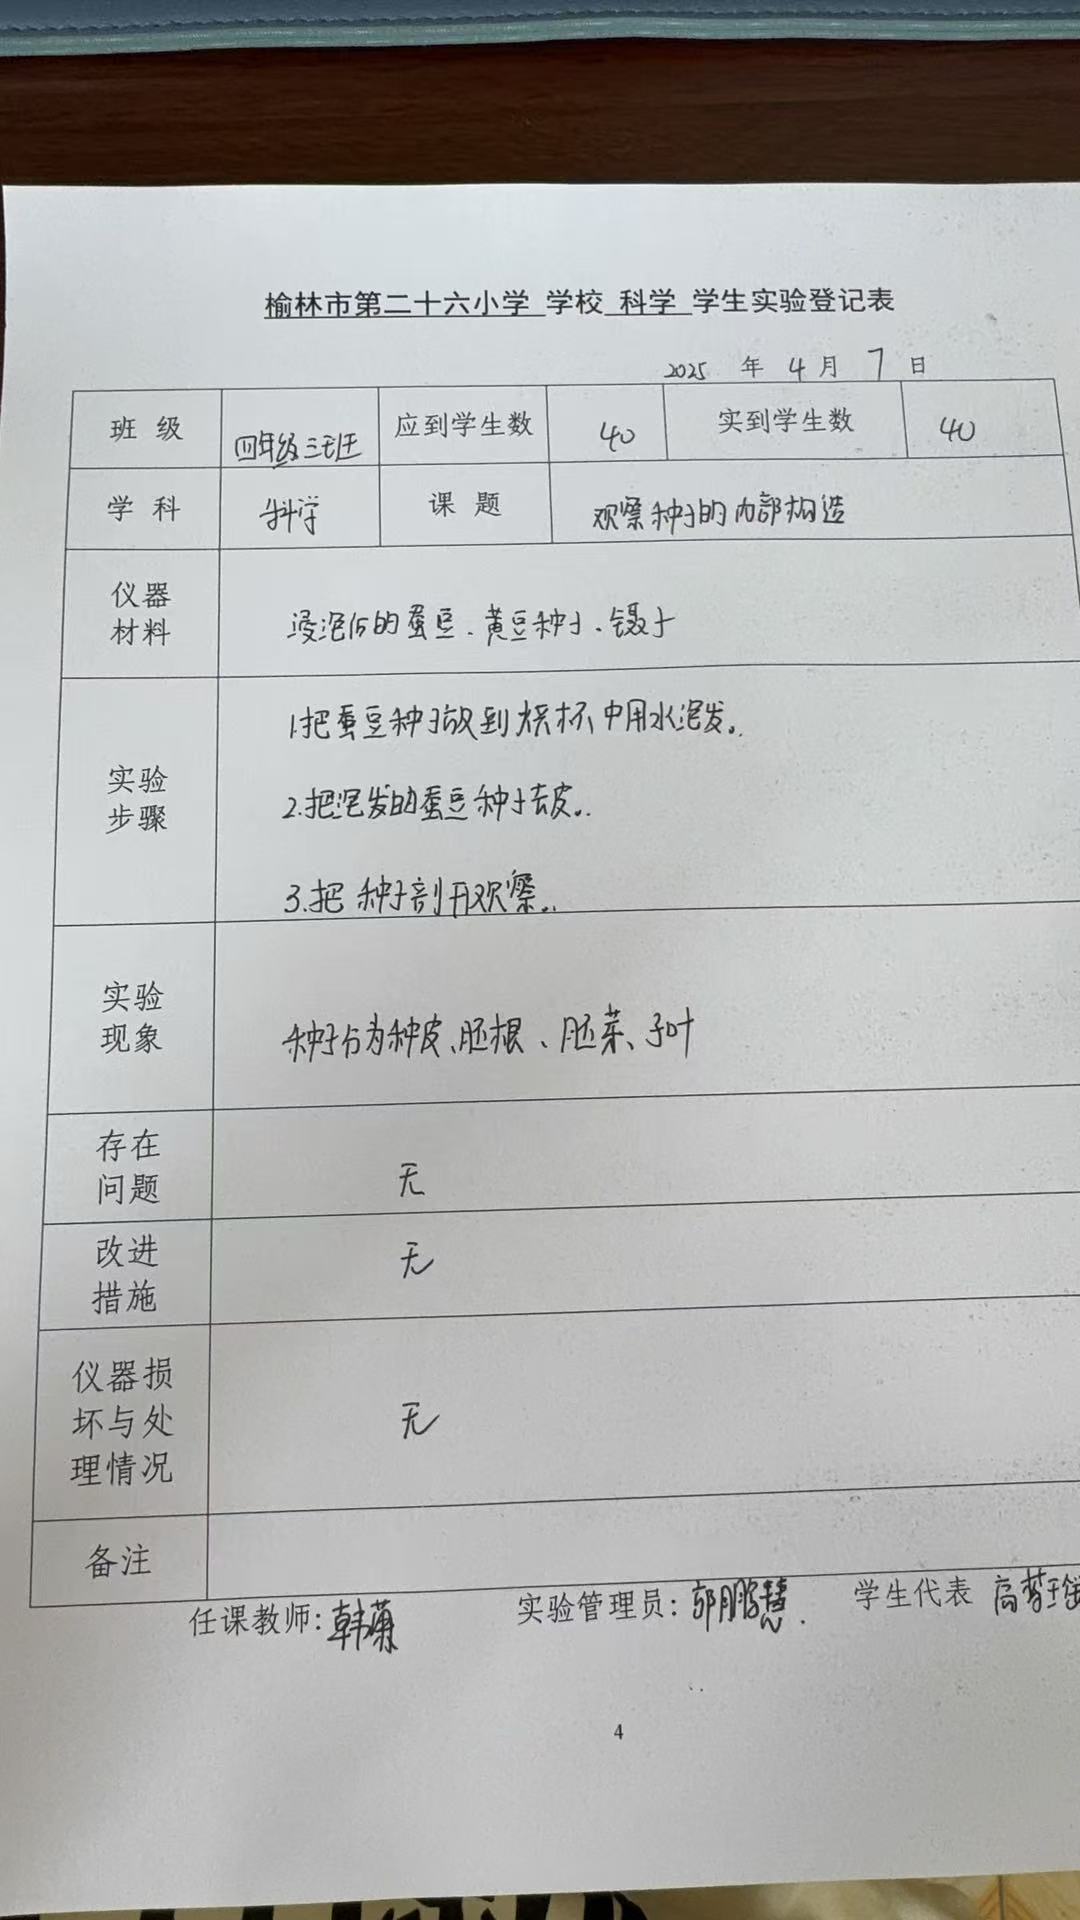 榆林市第二十六小学 学校 科学 学生实验登记表
2025 年 4 月 7 日
班 级 四年级三班 应到学生数 40 实到学生数 40
学 科 科学 课 题 观察种子的内部构造
仪器
材料
浸泡后的蚕豆、黄豆种子、镊子
实验
步骤
1.把蚕豆种子放到烧杯中用水泡发。
2.把泡发的蚕豆种子去皮。
3.把种子剖开观察。
实验
现象
种子分为种皮、胚根、胚芽、子叶
存在
问题
无
改进
措施
无
仪器损
坏与处
理情况
无
备注
任课教师: 韩 实验管理员: 郭鹏慧 学生代表 高梦瑶
4